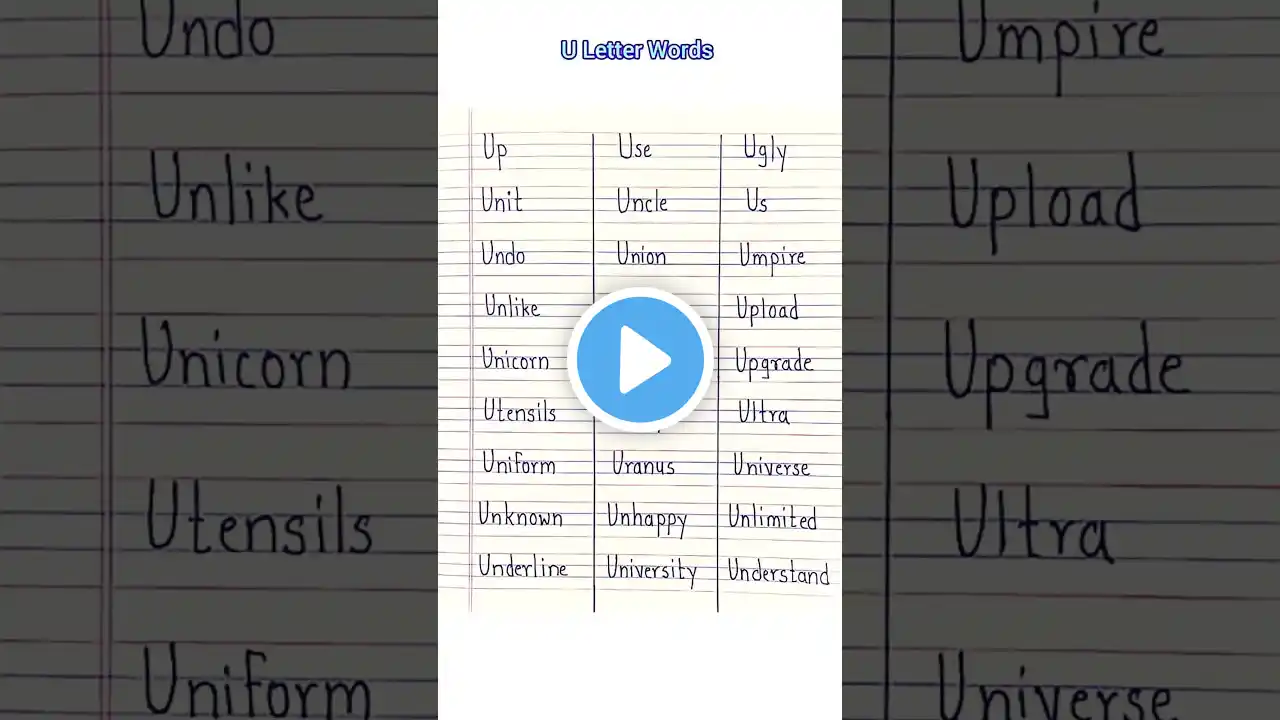 U Letter Words
Undo
Unlike
Unicorn
Utensils
Uniform
Up Use Ugly
Unit Uncle Us
Undo Union Umpire
Unlike Upload
Unicorn Upgrade
Utensils Ultra
Uniform Uranus Universe
Unknown Unhappy Unlimited
Underline University Understand
Umpire
Upload
Upgrade
Ultra
Universe